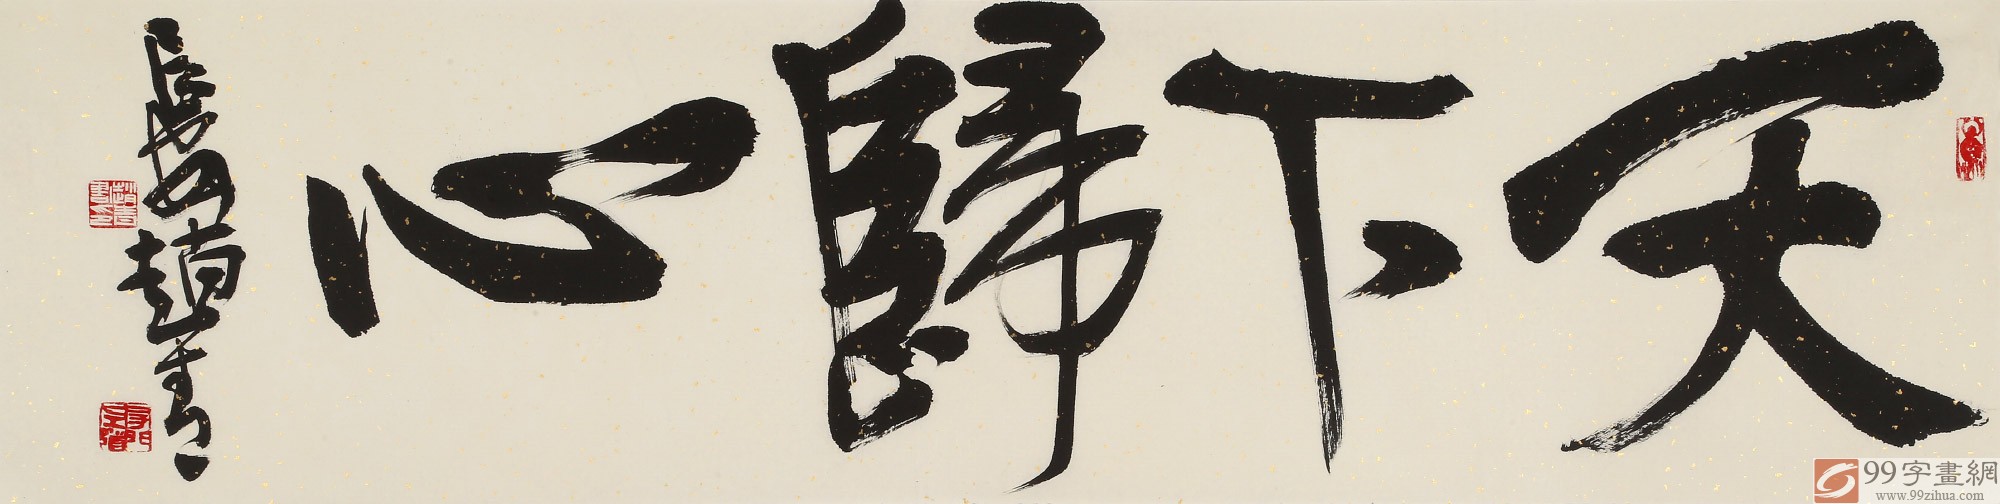 天下歸心
長安趙青
99字畫網
www.99zihua.com